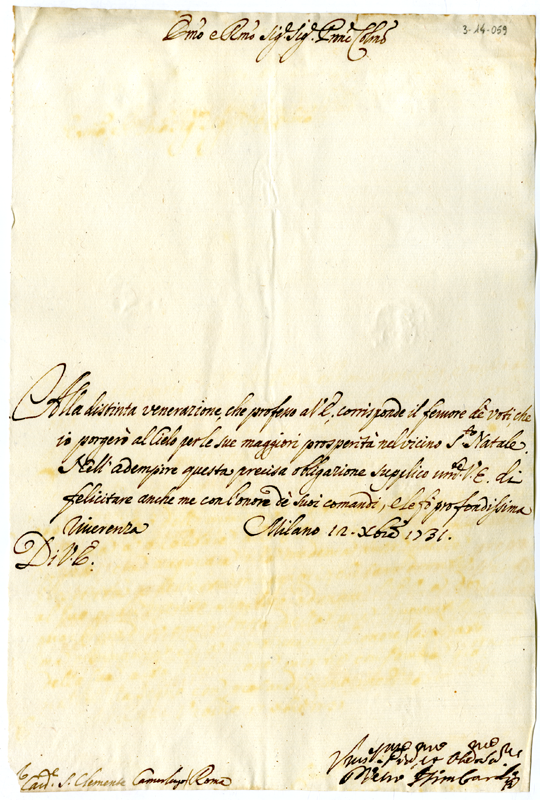 Emo e Rmo Sig.r Sig.r Prne Colmo
3-14-059
Alla distinta venerazione, che professo a V.E., corrisponde il fervore de voti, che
io porgerò al Cielo per le sue maggiori prosperità nel vicino S.to Natale.
Nell'adempire questa precisa obligazione supplico V.E. di
felicitare anche me con l'onore de suoi comandi, e le fò profondissima
riverenza Milano 12. Xbre 1731.
Di V.E.
Card.e S. Clemente Camerlengo Roma